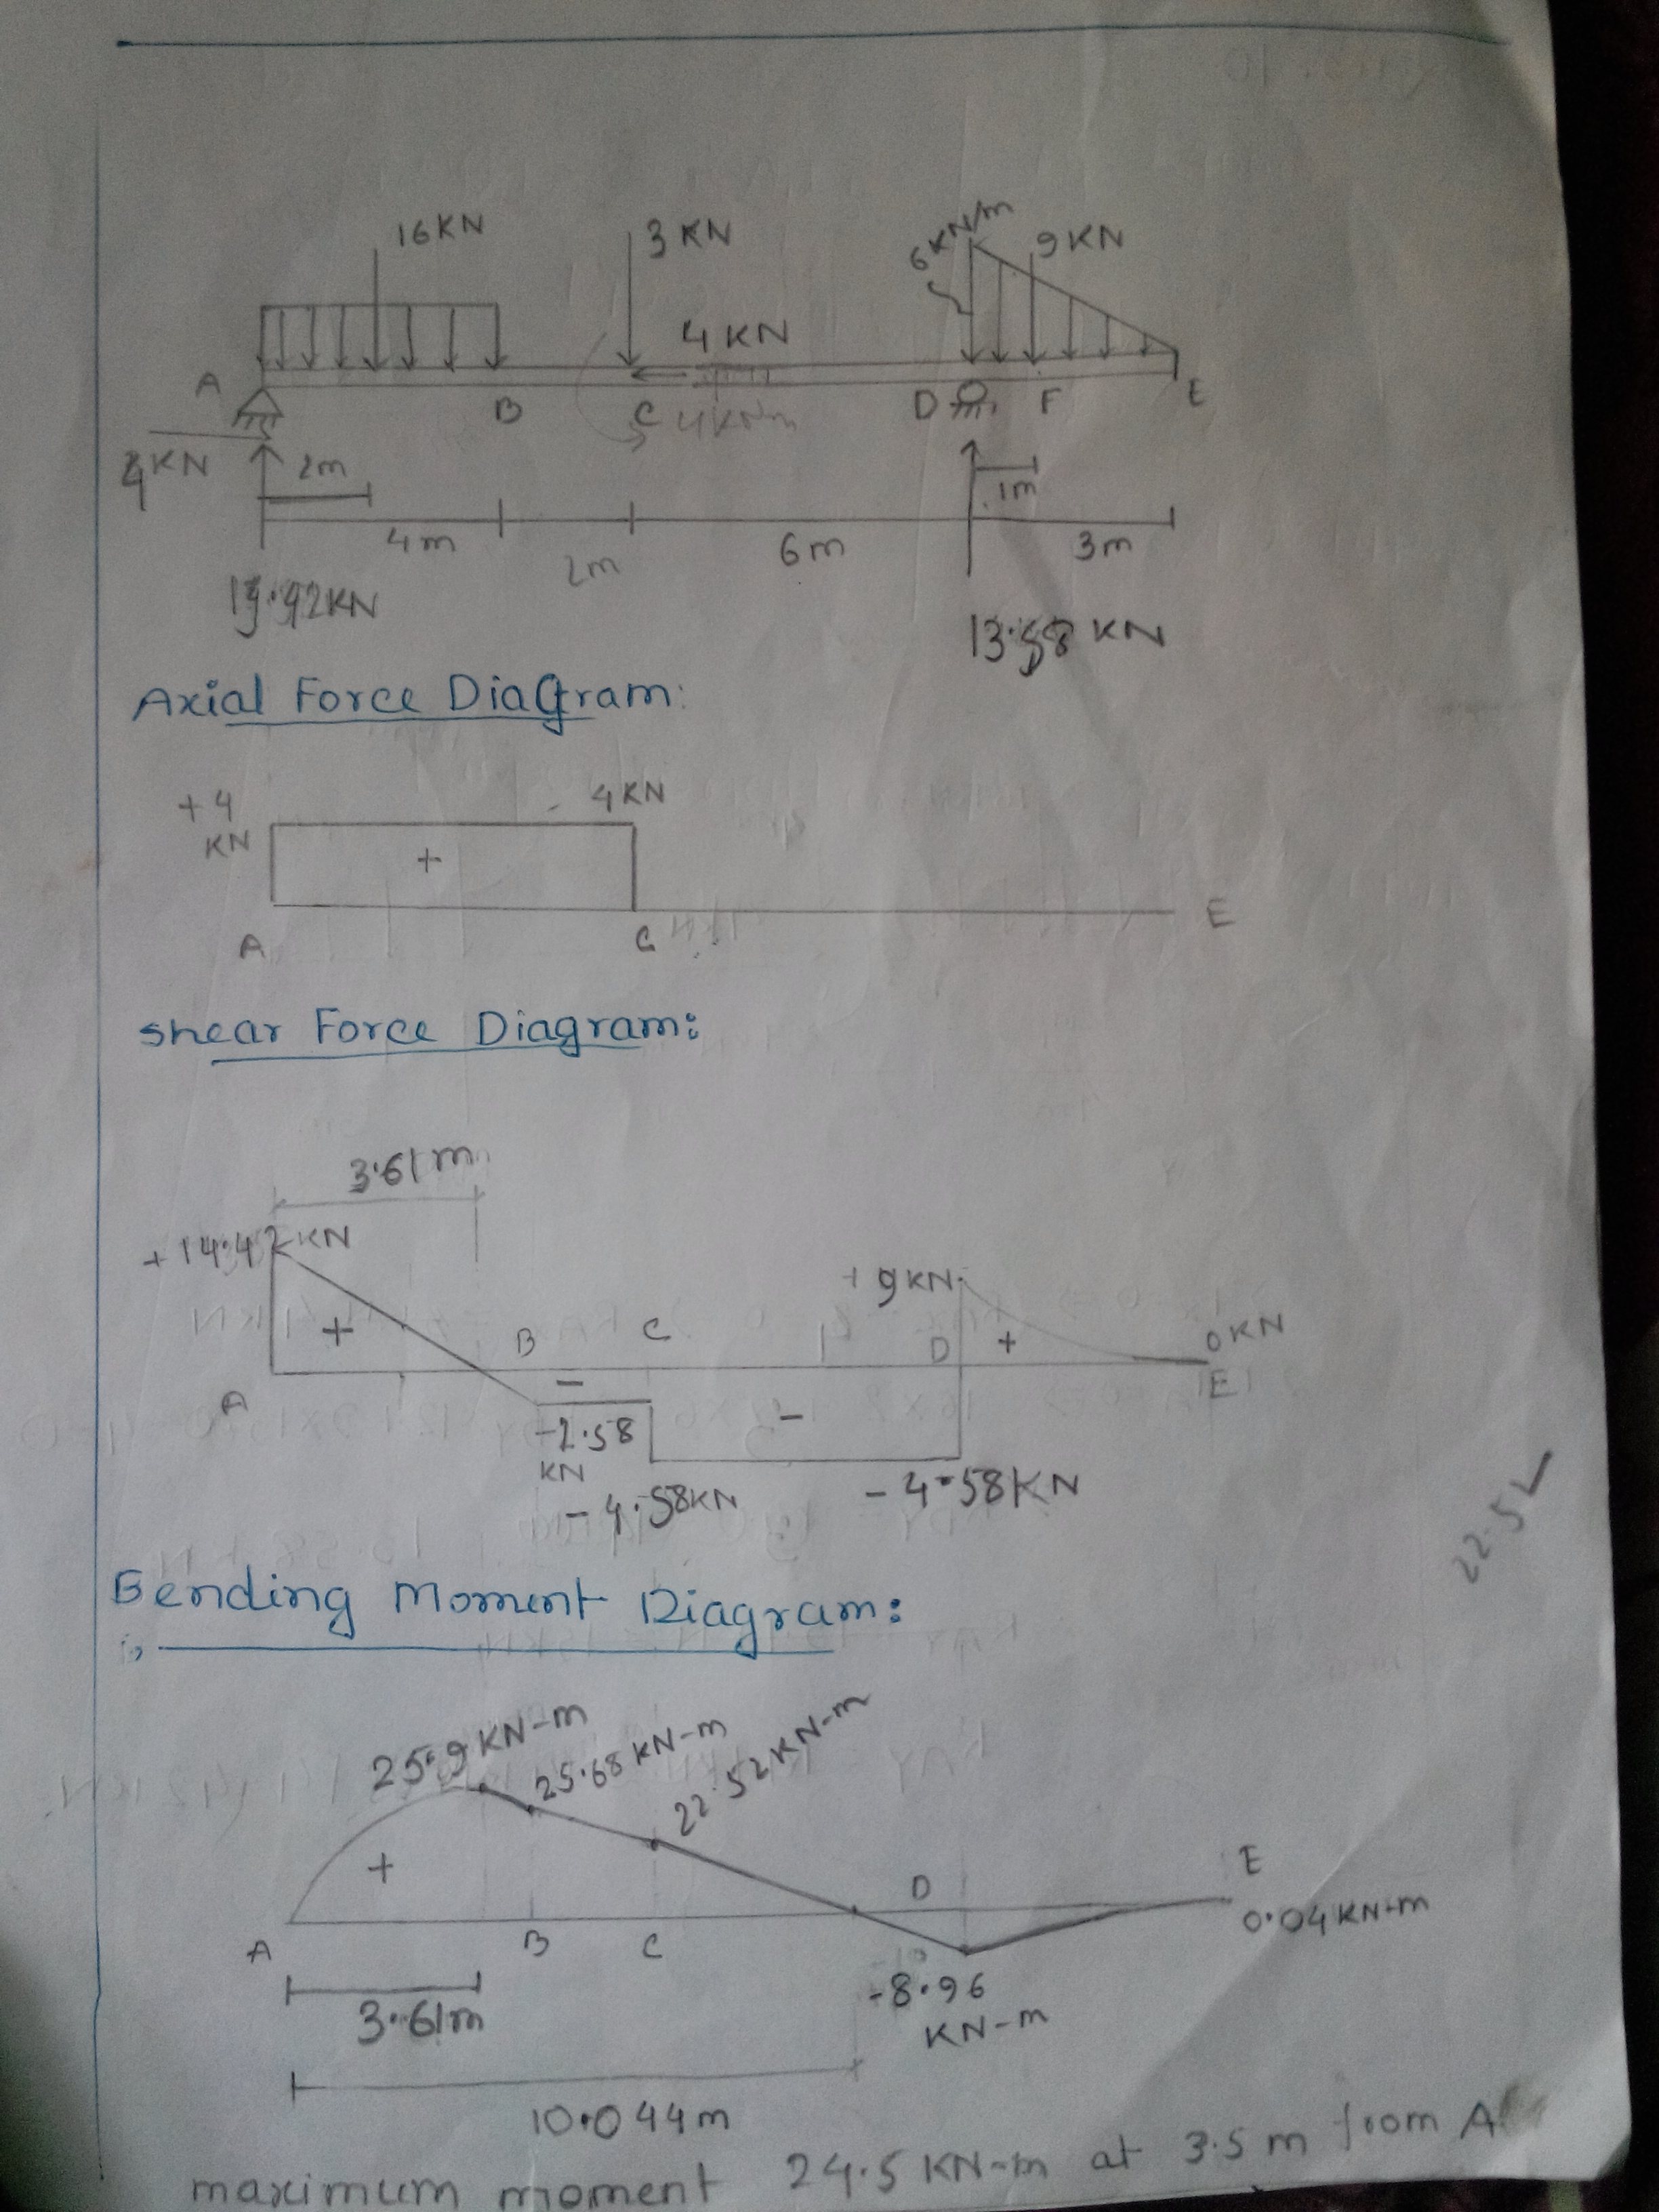 16KN 3 KN 6KN/m 9KN
4 KN
A B C 4KNm D F E
4KN 2m 1m
4m 2m 6m 3m
13.58 KN
Axial Force Diagram:
+4 KN 4KN
+
A C E
Shear Force Diagram:
3.61m
+14.42KN
+9KN
+ B C D + 0KN
A - E
-2.58 KN -
-4.58KN -4.58KN
22.52
Bending Moment Diagram:
25.9 KN-m 25.68 KN-m 22.52 KN-m
+ D E
0.04KN-m
A B C
-8.96 KN-m
3.61m
10.044m
maximum moment 24.5 KN-m at 3.5 m from A